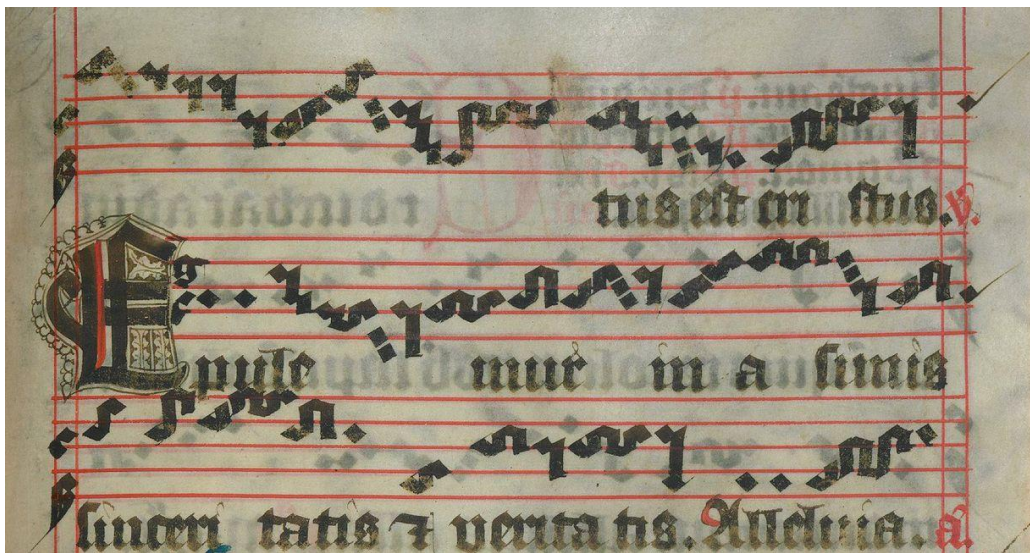 tus est cri stus. ℣.
Epule mur in a simis
sinceri tatis ⁊ verita tis. Alleluia. a